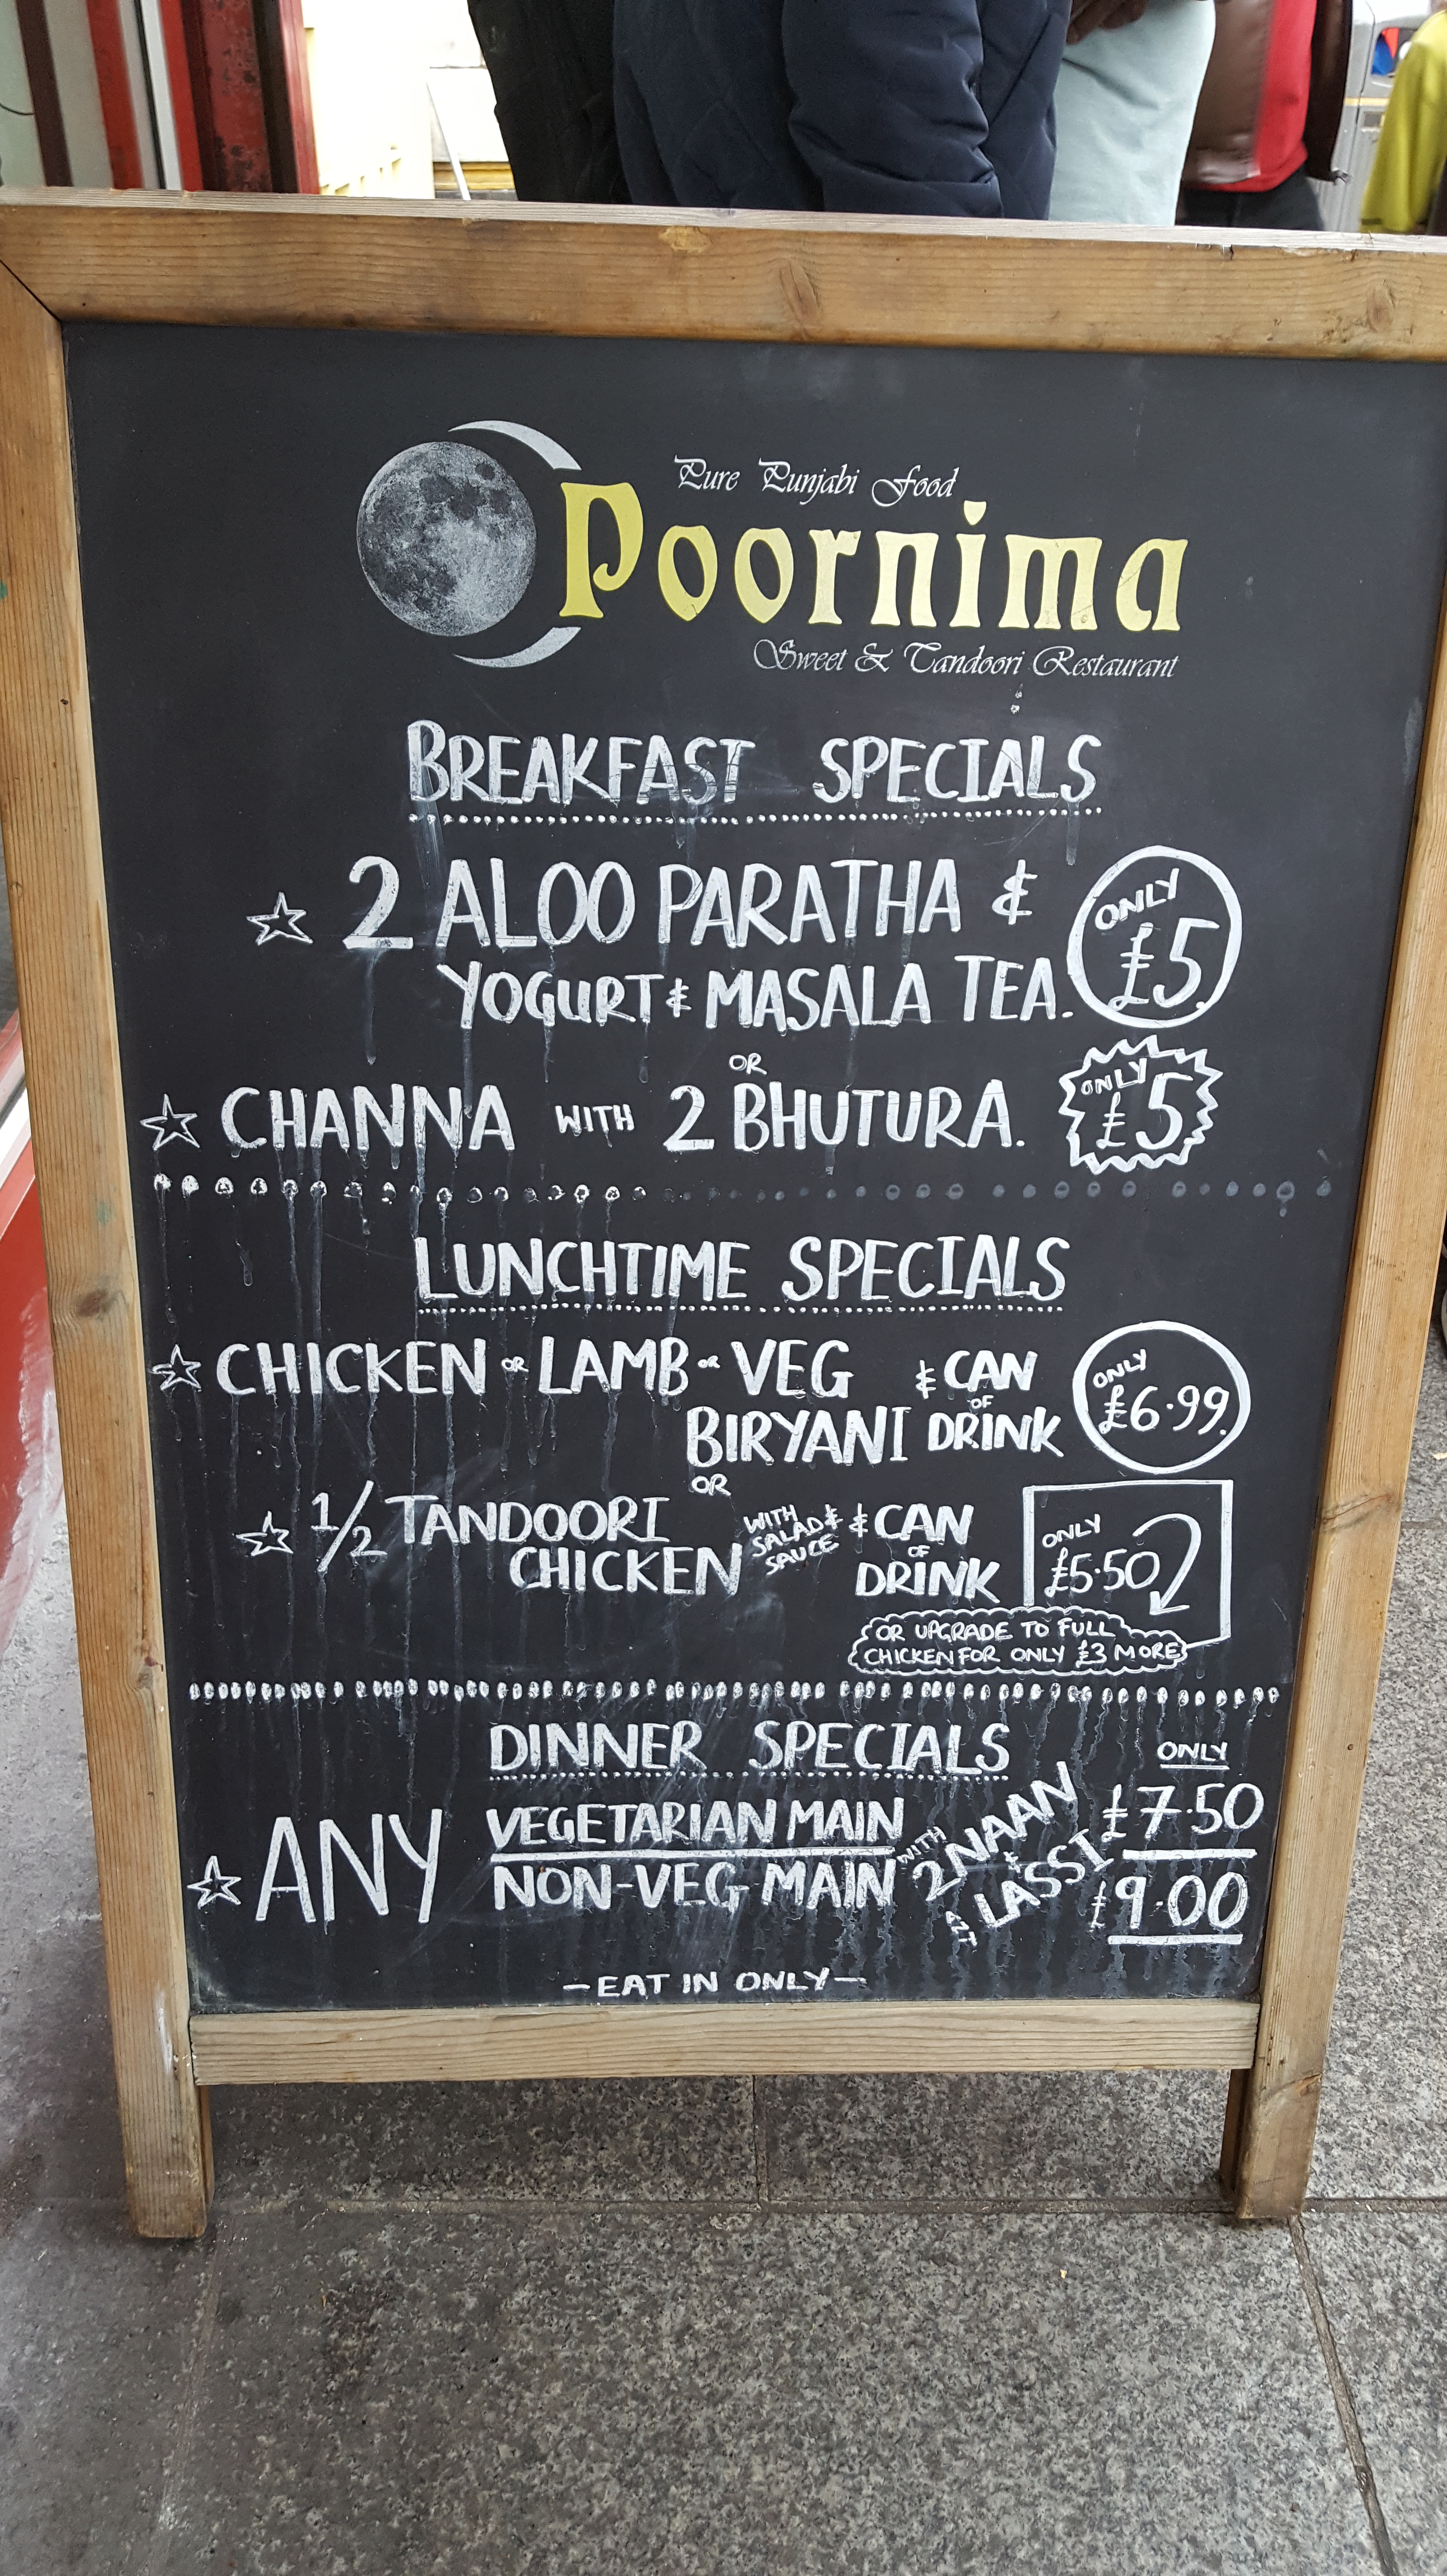 Pure Punjabi Food
Poornima
Sweet & Tandoori Restaurant
BREAKFAST SPECIALS
2 ALOO PARATHA &
YOGURT & MASALA TEA.
ONLY
£5.
OR
CHANNA WITH 2 BHUTURA.
ONLY
£5
LUNCHTIME SPECIALS
CHICKEN OR LAMB OR VEG
BIRYANI
& CAN
OF
DRINK
ONLY
£6.99.
OR
1/2 TANDOORI
CHICKEN
WITH
SALAD &
SAUCE
& CAN
OF
DRINK
ONLY
£5.50
OR UPGRADE TO FULL
CHICKEN FOR ONLY £3 MORE
DINNER SPECIALS
ONLY
ANY
VEGETARIAN MAIN
NON-VEG MAIN
WITH
2 NAAN
&
LASSI
£7.50
£9.00
-EAT IN ONLY-